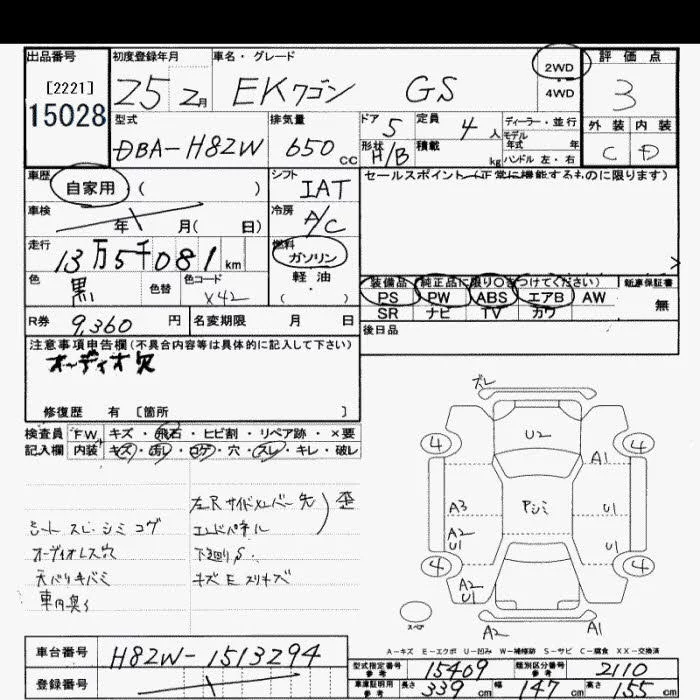 出品番号 初度登録年月 車名・グレード 評価点
[2221] 25 2月 EKワゴン GS 2WD 3
15028 4WD
型式 排気量 ドア 5 定員 4人 ディーラー・並行 外装 内装
DBA-H82W 650cc 形状 H/B 積載 kg モデル年式 年 C D
ハンドル 左・右
車歴 自家用 ( ) シフト IAT セールスポイント(正常に機能するものに限ります)
車検 年 月( 日) 冷房 A/C
走行 13万5千081km 燃料 ガソリン
色 黒 色替 色コード X42 軽油 ( ・ )
装備品 純正品に限り○をつけてください) 新車保証書
PS PW ABS エアB AW 無
SR ナビ TV カワ
R券 9,360円 名変期限 月 日 後日品
注意事項申告欄(不具合内容等は具体的に記入して下さい)
オーディオ欠
修復歴 有 [箇所 ]
検査員 FW キズ・飛石・ヒビ割・リペア跡・×要
記入欄 内装 キズ・汚レ・コゲ・穴・スレ・キレ・破レ
ズレ
U2
4 4
A1
左Rサイドメンバー先 歪
シートスレ・シミコゲ エンドパネル
A3 Pシミ U1
オーディオレス穴 下廻りS.
A2 U1 U1
天バリキバミ キズEスリキズ
4 4
車内臭い
A2 U1
スペア
A2 A1
A-キズ E-エクボ U-凹み W-補修跡 S-サビ C-腐食 XX-交換済
車台番号 H82W-1513294
型式指定番号 参考 15409 類別区分番号 参考 2110
登録番号
車庫証明用 参考 長さ 339cm 幅 147cm 高さ 155cm